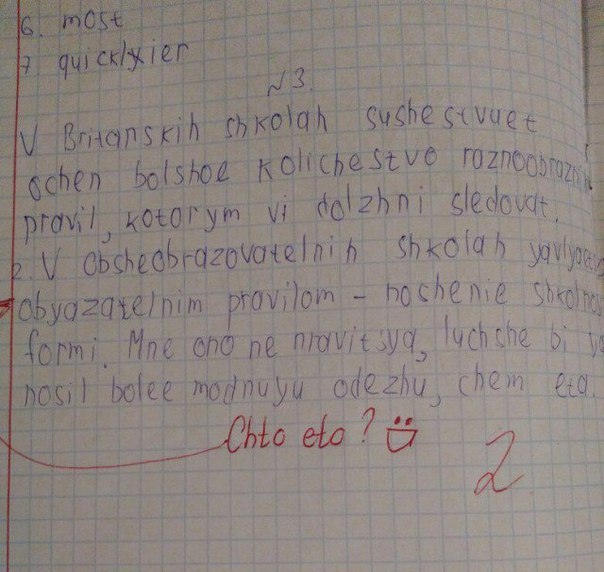 6. most
7 quicklyier
N3.
V Britanskih shkolah sushestvuet
ochen bolshoe kolichestvo
pravil, kotorym vi dolzhni sledovat.
2. V obsheobrazovatelnih shkolah
obyazatelnim pravilom - noshenie
formi. Mne ono ne nravitsya, luchshe bi ya
nosil bolee modnuyu odezhu, chem eta.
Chto eto?
2